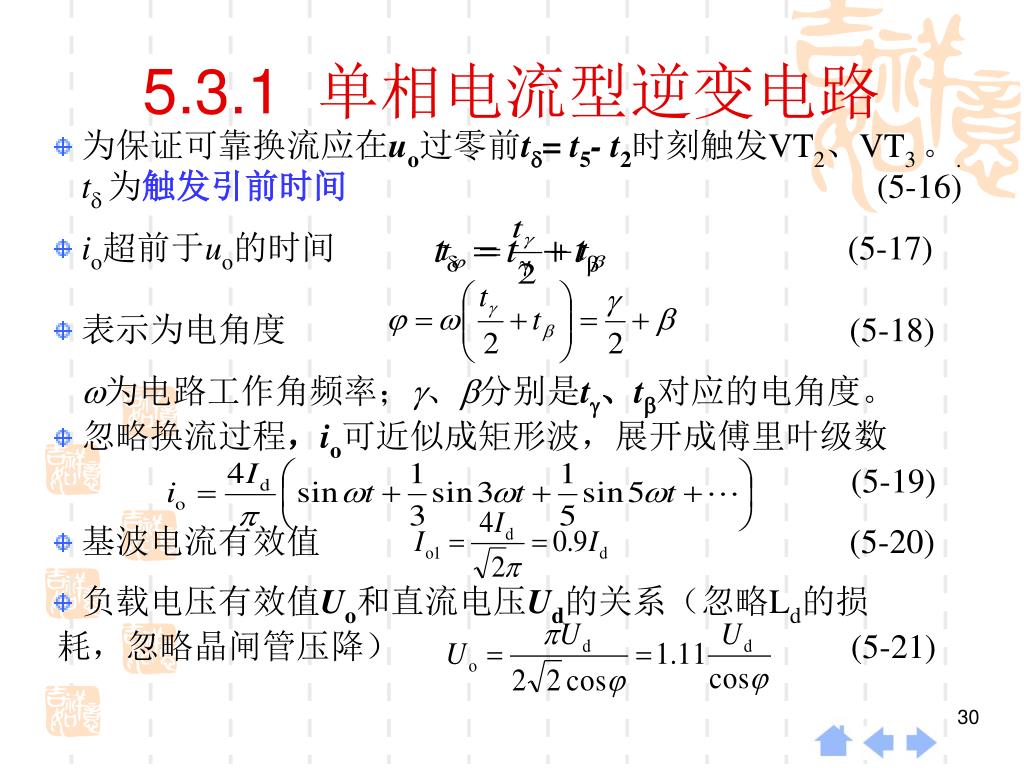 5.3.1 单相电流型逆变电路
为保证可靠换流应在uo过零前tδ= t5- t2时刻触发VT2、VT3 。 .
tδ 为触发引前时间 (5-16)
io超前于uo的时间 (5-17)
表示为电角度 φ = ω(tγ/2 + tβ) = γ/2 + β (5-18)
ω为电路工作角频率；γ、β分别是tγ、tβ对应的电角度。
忽略换流过程，io可近似成矩形波，展开成傅里叶级数
io = 4Id/π (sin ωt + 1/3 sin 3ωt + 1/5 sin 5ωt + ⋯) (5-19)
基波电流有效值 Io1 = 4Id/√2π = 0.9Id (5-20)
负载电压有效值Uo和直流电压Ud的关系（忽略Ld的损
耗，忽略晶闸管压降） Uo = πUd/2√2 cosφ = 1.11 Ud/cosφ (5-21)
30